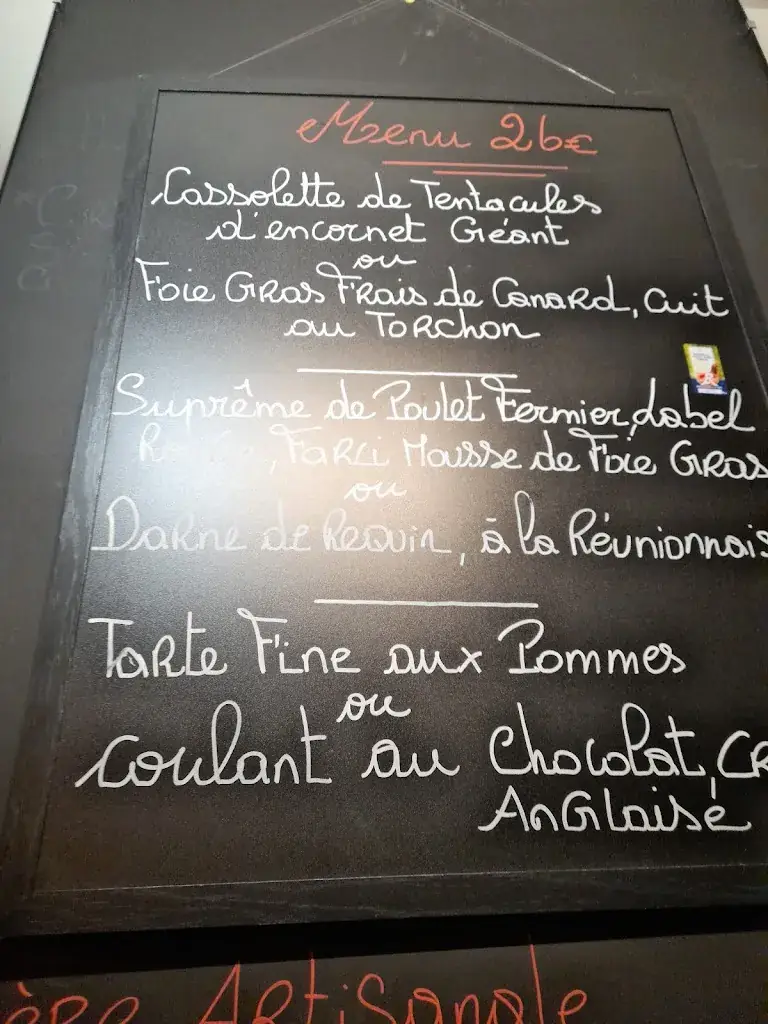 Menu 26€
Cassolette de Tentacules
d'encornet Géant
ou
Foie Gras Frais de Canard, cuit
au Torchon
Suprême de Poulet Fermier, Label
Farci Mousse de Foie Gras
ou
Darne de Requin, à la Réunionnais
Tarte Fine aux Pommes
ou
coulant au Chocolat, CR
Anglaise
ère Artisanale